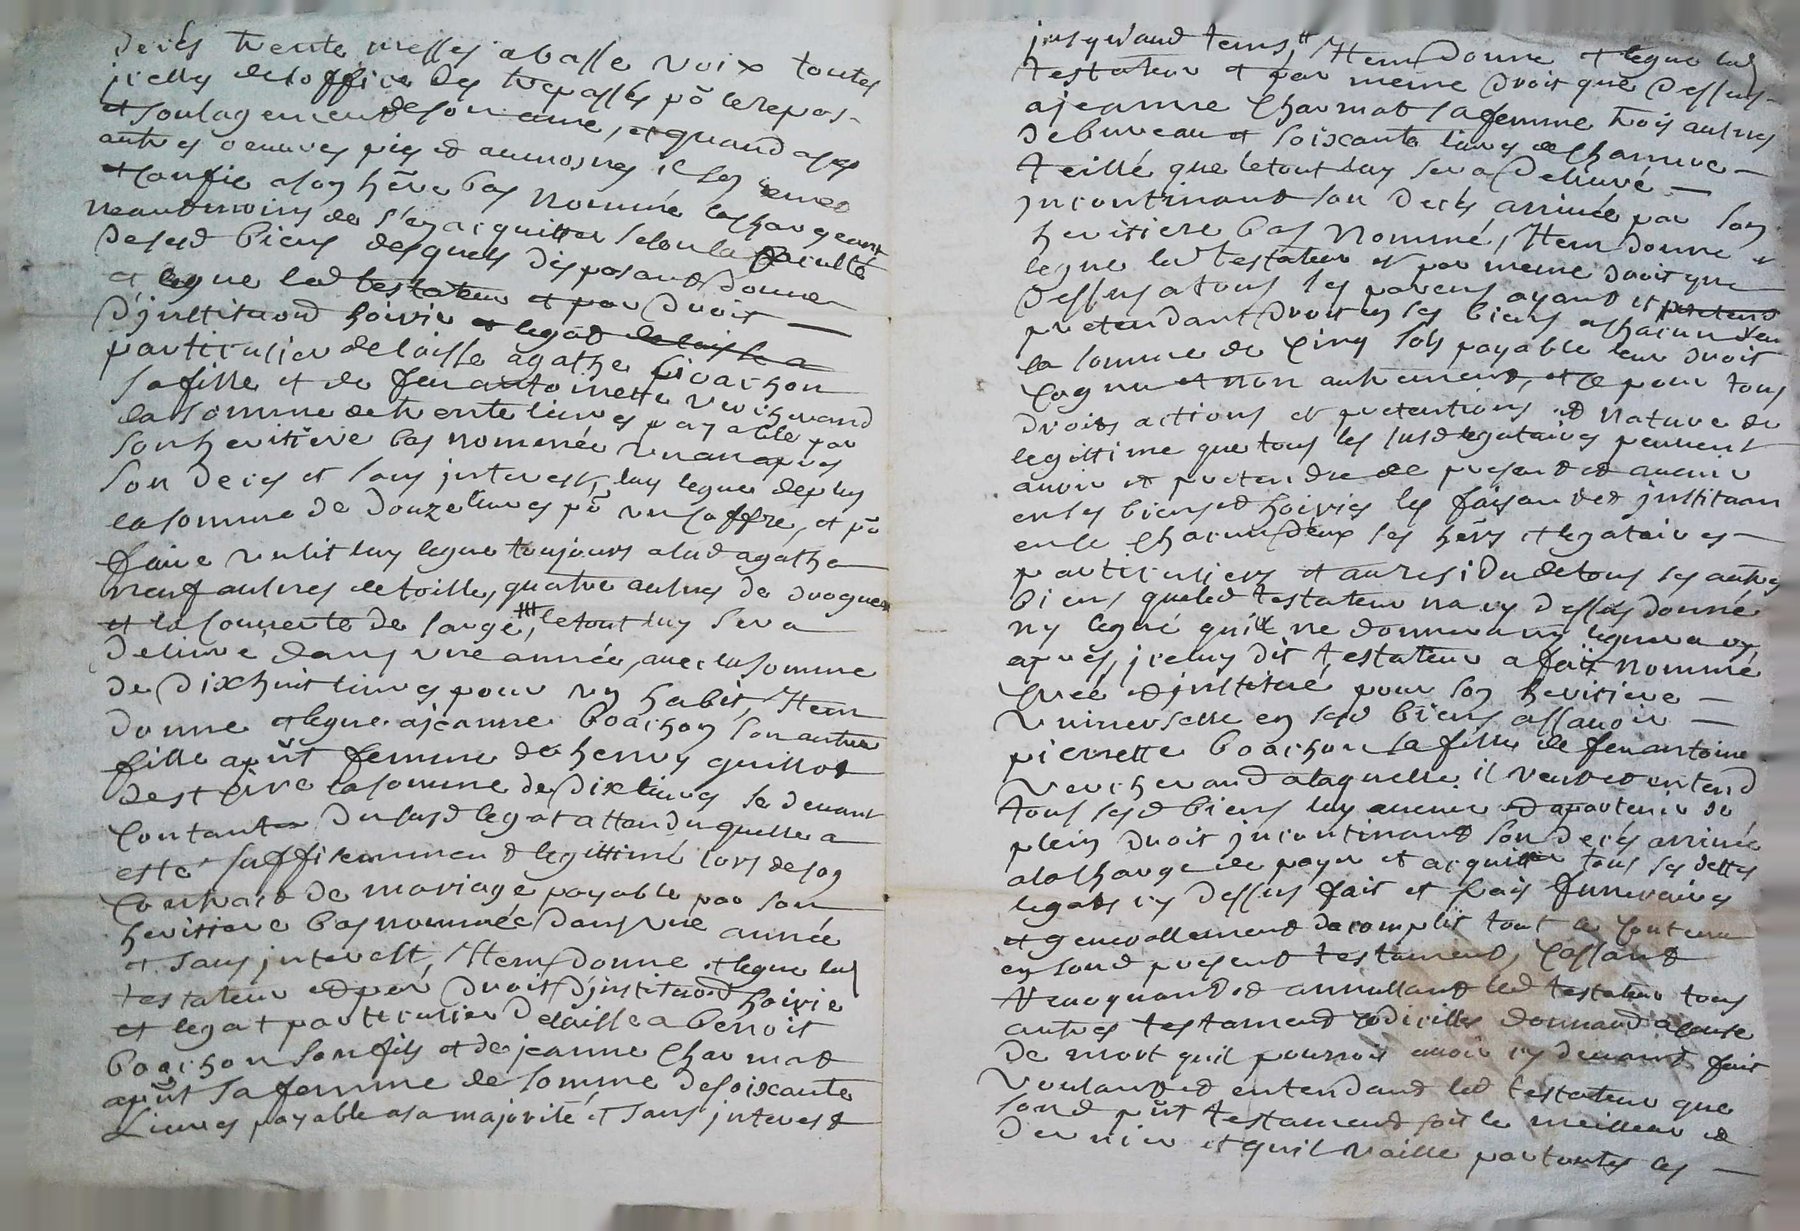 decés trente messes a basse voix toutes
jcelles de loffice des trepassés pō le repos
et soulagement de son ame, et quand a ses
autres oeuures pies et aumosnes il les remet
et confie a son hēre bas nommée les chargeant
neantmoins de s'en acquitter selon la faculté
de sesd biens desquels disposant donne
et legue led testateur et par droit
d'jnstituond hoirie et legat delaisse a
particulier delaisse agathe boachon
sa fille et de feu antoinette vercherand
la somme de trente liures payable par
son heritiere bas nommée un an apres
son deces et sans jnterest, luy legue de plus
la somme de douze liures pō un coffre, et pō
faire un lit luy legue toujours a lad agathe
neuf aulnes de toille, quatre aulnes de droguet
et la couuerte de sarge, le tout luy sera
deliuré dans une année, auec la somme
de dixhuit liures pour un habit, Item
donne et legue a jeanne boachon son autre
fille apn̄t femme de henry guillot
destiué la somme de dix liures se deuant
contanter du susd legat attendu quelle a
esté suffisemment legittimé lors de son
contract de mariage payable par son
heritiere bas nommée dans une année
et sans jnterest, Item donne et legue led
testateur et par droit d'jnstituond hoirie
et legat particulier delaisse a benoit
boachon son fils et de jeanne charmat
apn̄t sa femme de somme de soixante
Liures payable a sa majorité et sans jnterest
jusqu'aud tems, Item donne et legue led
testateur et par meme droit que dessus
a jeanne charmat sa femme trois aulnes
de bureau et soixante liures de chanure
teillé que le tout luy sera deliuré
jncontinant son decés arriuée par son
heritiere bas nommé, Item donne et
legue led testateur et par meme droit que
dessus a tous ses parens ayant et pretend
pretendant droit en ses biens a chacun deux
la somme de cinq sols payable leur droit
cognu et non autrement, et ce pour tous
droits actions et pretentions et nature de
legittime que tous les susd legataires peuuent
auoir et pretendre de present et auenir
en ses biens et hoiries les faisant et jnstituan
en ce chacun deux ses hērs et legataires
particuliers et au residu de tous ses autres
biens que led testateur na cy dessus donné
ny legué quill ne donnera ny leguera cy
apres, jceluy dit testateur a fait nommé
creé et jnstitué pour son heritiere
uniuerselle en sesd biens assauoir
pierrette boachon sa fille de feu antoine
vercherand a laquelle il veut et entend
tous sesd biens luy auenir et apartenir de
plein droit jncontinant son decés arriuée
a la charge de payer et acquitter tous ses dettes
legats cy dessus fait et frais funeraires
et generallement dacomplir tout le contenu
en sond present testament, cassant
reuoquant et annullant led testateur tous
autres testament codicilles donnand a cause
de mort quil pourroit auoir cy deuant fait
voulant et entendant led testateur que
sond pn̄t testament soit le meilleur et
dernier et quil vaille par toutes les